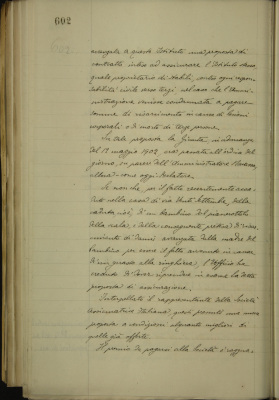 602
avanzata a questo Istituto una proposta di
contratto inteso ad assicurare l'Istituto stesso,
quale proprietario di stabili, contro ogni respon-
sabilità civile verso terzi nel caso che l'Ammi-
nistrazione venisse condannata a pagare
somme di risarcimento in causa di lesioni
corporali o di morte di terze persone.
In tale proposta la Giunta, in adunanza
del 12 maggio 1909, era passata all'ordine del
giorno, su parere dell'Amministratore
allora come oggi Relatore.
Se non che per il fatto recentemente acca-
duto nella casa di via Venti Settembre, della
caduta cioè, di un bambino dal pianerottolo
della scala, e della conseguente pretesa di risar-
cimento di danni avanzata dalla madre del
bambino per essere il fatto avvenuto in causa
di un guasto alla ringhiera, l'Ufficio ha
creduto di dover riprendere in esame la detta
proposta di assicurazione.
Interpellato il rappresentante della Società
Assicuratrice Italiana, questi presentò una nuova
proposta a condizioni alquanto migliori di
quelle già offerte.
Il premio da pagarsi alla Società s'uggua-